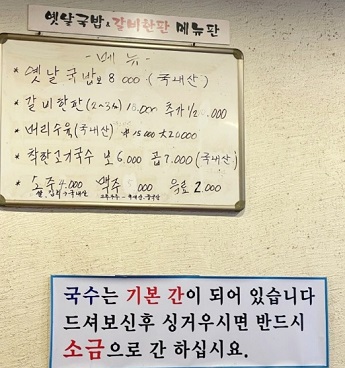 옛날국밥&갈비한판 메뉴판
- 메 뉴 -
* 옛날국밥 보 8000 (국내산)
* 갈비한판(2~3人) 18.000 추가 1/2 .000
* 머리수육(국내산) 小15000 大20000
* 착한고기국수 보 6,000 곱 7.000 (국내산)
* 소주 4.000 맥주 .000 음료 2.000
쌀, 김치 → 국내산
국수는 기본 간이 되어 있습니다
드셔보신후 싱거우시면 반드시
소금으로 간 하십시요.